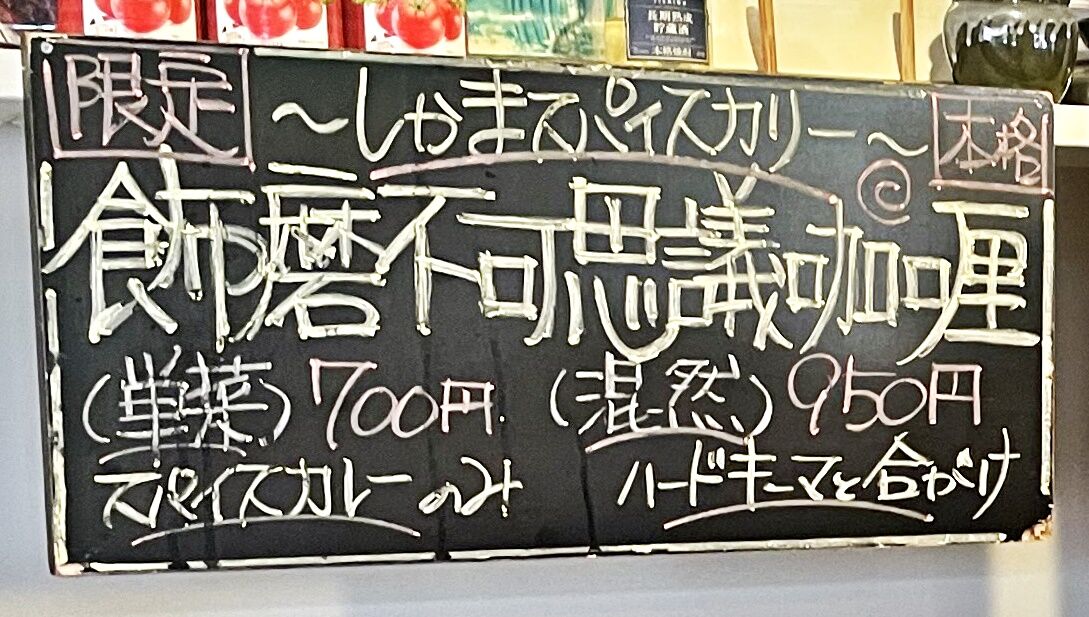 長期熟成
貯蔵酒
本格焼酎
限定 ～しかまスパイスカリー～ 本格
飾磨不可思議咖喱
(単菜) 700円 (混然) 950円
スパイスカレーのみ ハードキーマと合がけ